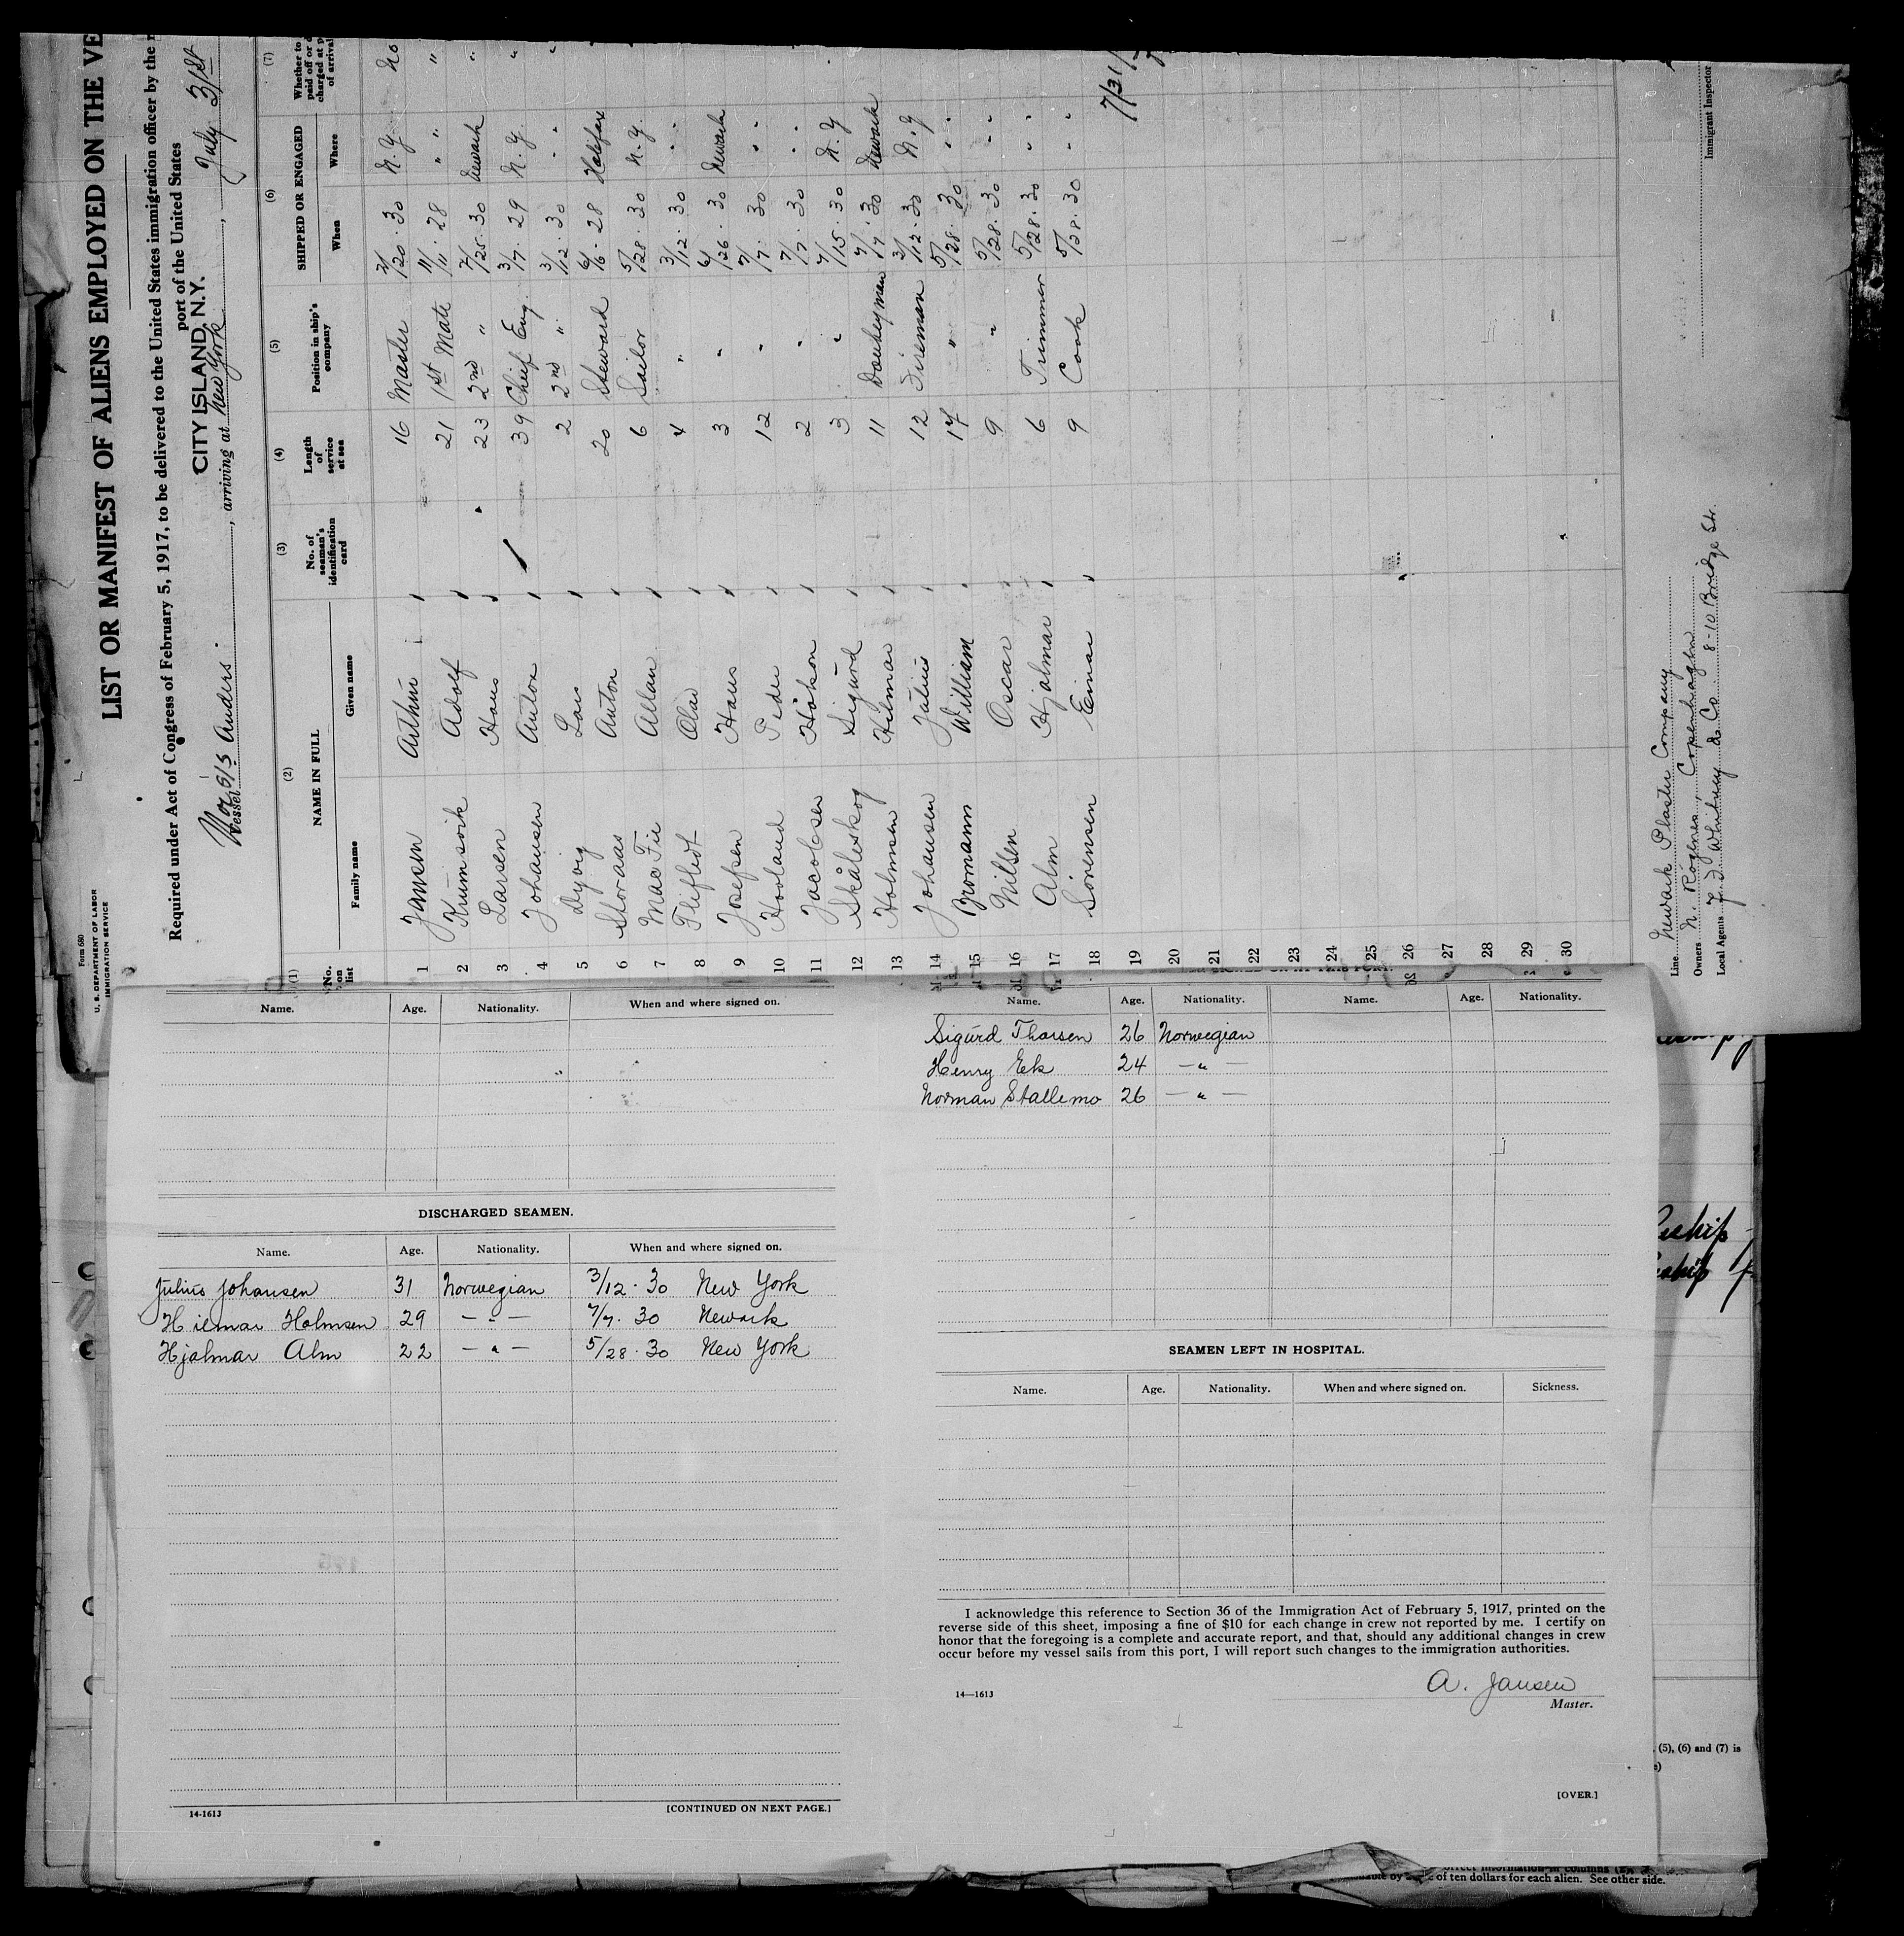 Form 680
U. S. DEPARTMENT OF LABOR
IMMIGRATION SERVICE
LIST OR MANIFEST OF ALIENS EMPLOYED ON THE VE
Required under Act of Congress of February 5, 1917, to be delivered to the United States immigration officer by the r
port of the United States
CITY ISLAND, N.Y.
Vessel Nor S/S Anders, arriving at New York, July 31st
(1) (2) (3) (4) (5) (6) (7)
No. on list NAME IN FULL No. of seaman's identification card Length of service at sea Position in ship's company SHIPPED OR ENGAGED Whether to paid off or d charged at p of arrival
Family name Given name When Where
1 Jansen Arthur 16 Master 2/20 . 30 N.Y. No
2 Krumsvik Adolf 21 1st Mate 11/11 . 28 " " "
3 Larsen Hans 23 2nd " 7/25 . 30 Newark "
4 Johansen Anton 39 Chief Eng. 3/7 . 29 N.Y. "
5 Dyvig Lars 2 2nd " 3/12 . 30 " " "
6 Storaas Anton 20 Steward 6/16 . 28 Halifax
7 MacFie Allan 6 Sailor 5/28 . 30 N.Y.
8 Olav 4 " 3/12 . 30 " "
9 Josefsen Hans 3 " 6/26 . 30 Newark
10 Hovland Peder 12 " 7/7 . 30 " "
11 Jacobsen Håkon 2 " 7/7 . 30 " "
12 Skålevskog Sigurd 3 " 7/15 . 30 N.Y
13 Holmsen Hilmar 11 Donkeyman 7/7 . 30 Newark
14 Johansen Julius 12 Fireman 3/12 . 30 N.Y
15 Bromann William 17 " 5/28 . 30 "
16 Nilsen Oscar 9 " 5/28 . 30 " "
17 Alm Hjalmar 6 Trimmer 5/28 . 30 "
18 Sørensen Einar 9 Cook 5/28 . 30 "
19
20
21
22
23
24
25
26
27
28
29
30
7/31/
Line Newark Plaster Company
Owners N. Rógenes, Copenhaghn
Local Agents F. D. Whitney & Co 8-10 Bridge Str.
Immigrant Inspector
Name. Age. Nationality. When and where signed on.
DISCHARGED SEAMEN.
Name. Age. Nationality. When and where signed on.
Julius Johansen 31 Norwegian 3/12 . 30 New York
Hilmar Holmsen 29 — " — 7/7 . 30 Newark
Hjalmar Alm 22 — " — 5/28 . 30 New York
14-1613 [CONTINUED ON NEXT PAGE.]
Name. Age. Nationality. Name. Age. Nationality.
Sigurd Thorsen 26 Norwegian
Henry Ek 24 — " —
Norman Stallemo 26 — " —
SEAMEN LEFT IN HOSPITAL.
Name. Age. Nationality. When and where signed on. Sickness.
I acknowledge this reference to Section 36 of the Immigration Act of February 5, 1917, printed on the
reverse side of this sheet, imposing a fine of $10 for each change in crew not reported by me. I certify on
honor that the foregoing is a complete and accurate report, and that, should any additional changes in crew
occur before my vessel sails from this port, I will report such changes to the immigration authorities.
A. Jansen
14—1613 Master.
[OVER.]
(5), (6) and (7) is
of ten dollars for each alien. See other side.